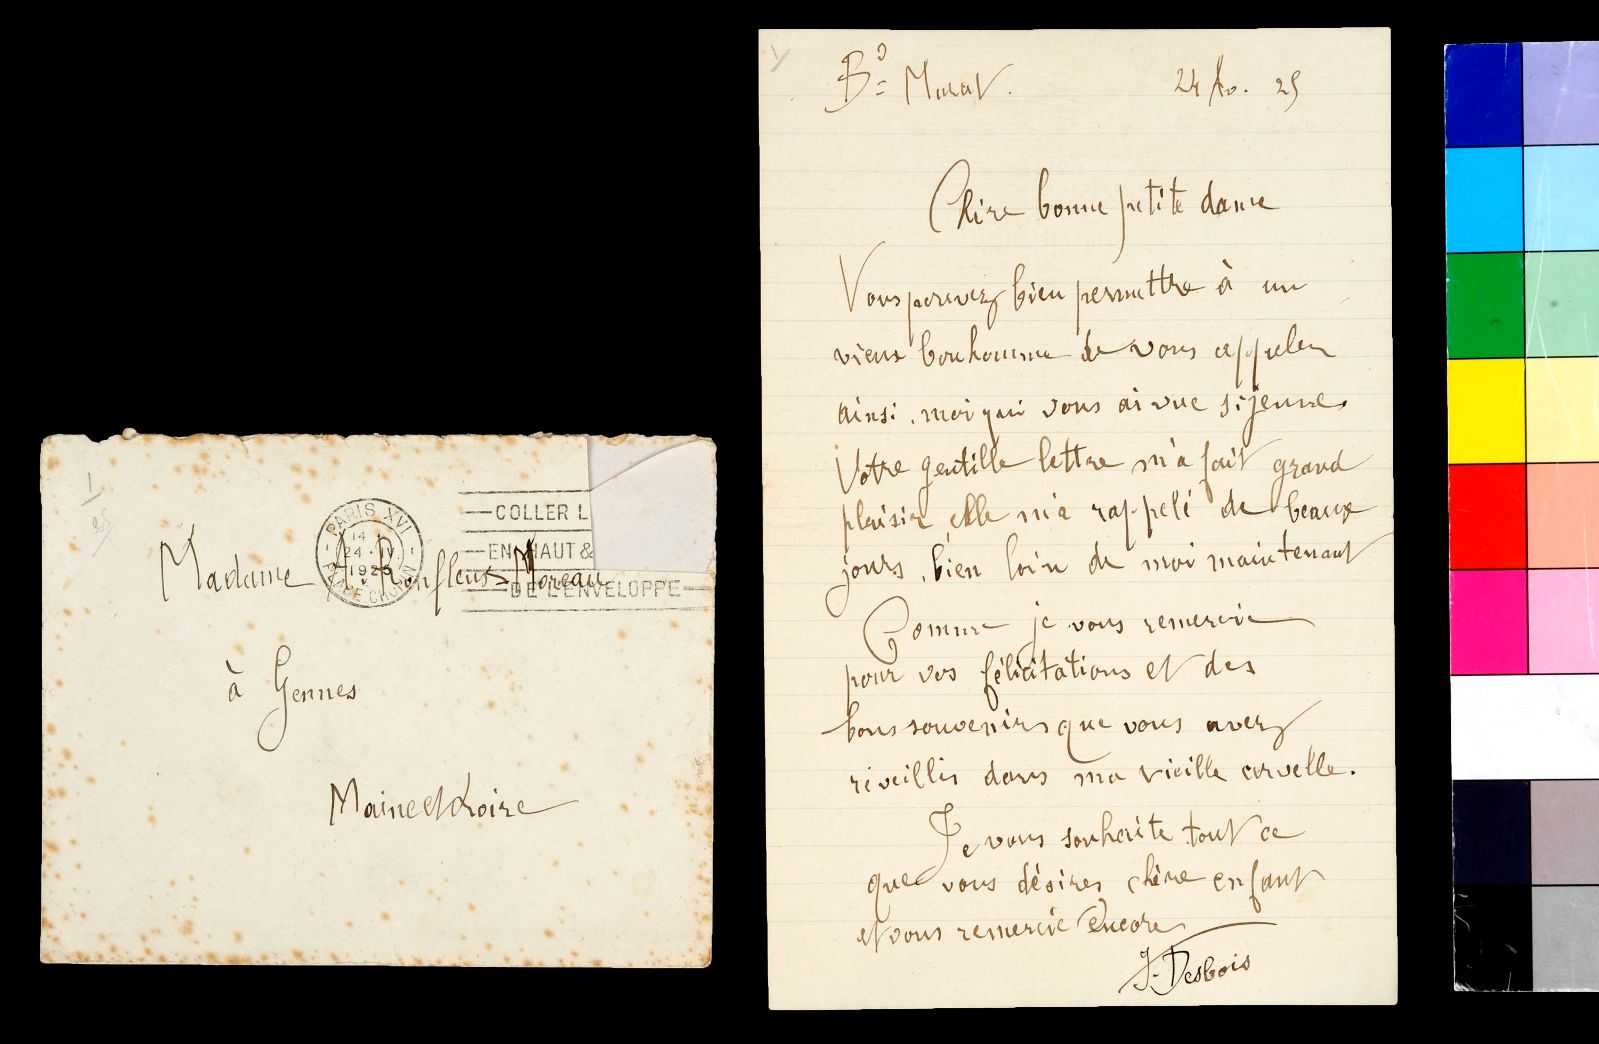 1
25
PARIS XVI
14
24 · IV
1925
PLACE CHOPIN
COLLER L
EN HAUT &
DE L'ENVELOPPE
Madame A. Ronfleux-Moreau
à Gennes
Maine et Loire
Bd Murat.
24 Av. 25
Chère bonne petite dame
Vous pouvez bien permettre à un
vieux bonhomme de vous appeler
ainsi, moi qui vous ai vue si jeune.
Votre gentille lettre m'a fait grand
plaisir elle m'a rappelé de beaux
jours, bien loin de moi maintenant
Comme je vous remercie
pour vos félicitations et des
bons souvenirs que vous avez
réveillés dans ma vieille cervelle.
Je vous souhaite tout ce
que vous désirez chère enfant
et vous remercie encore
J. Desbois